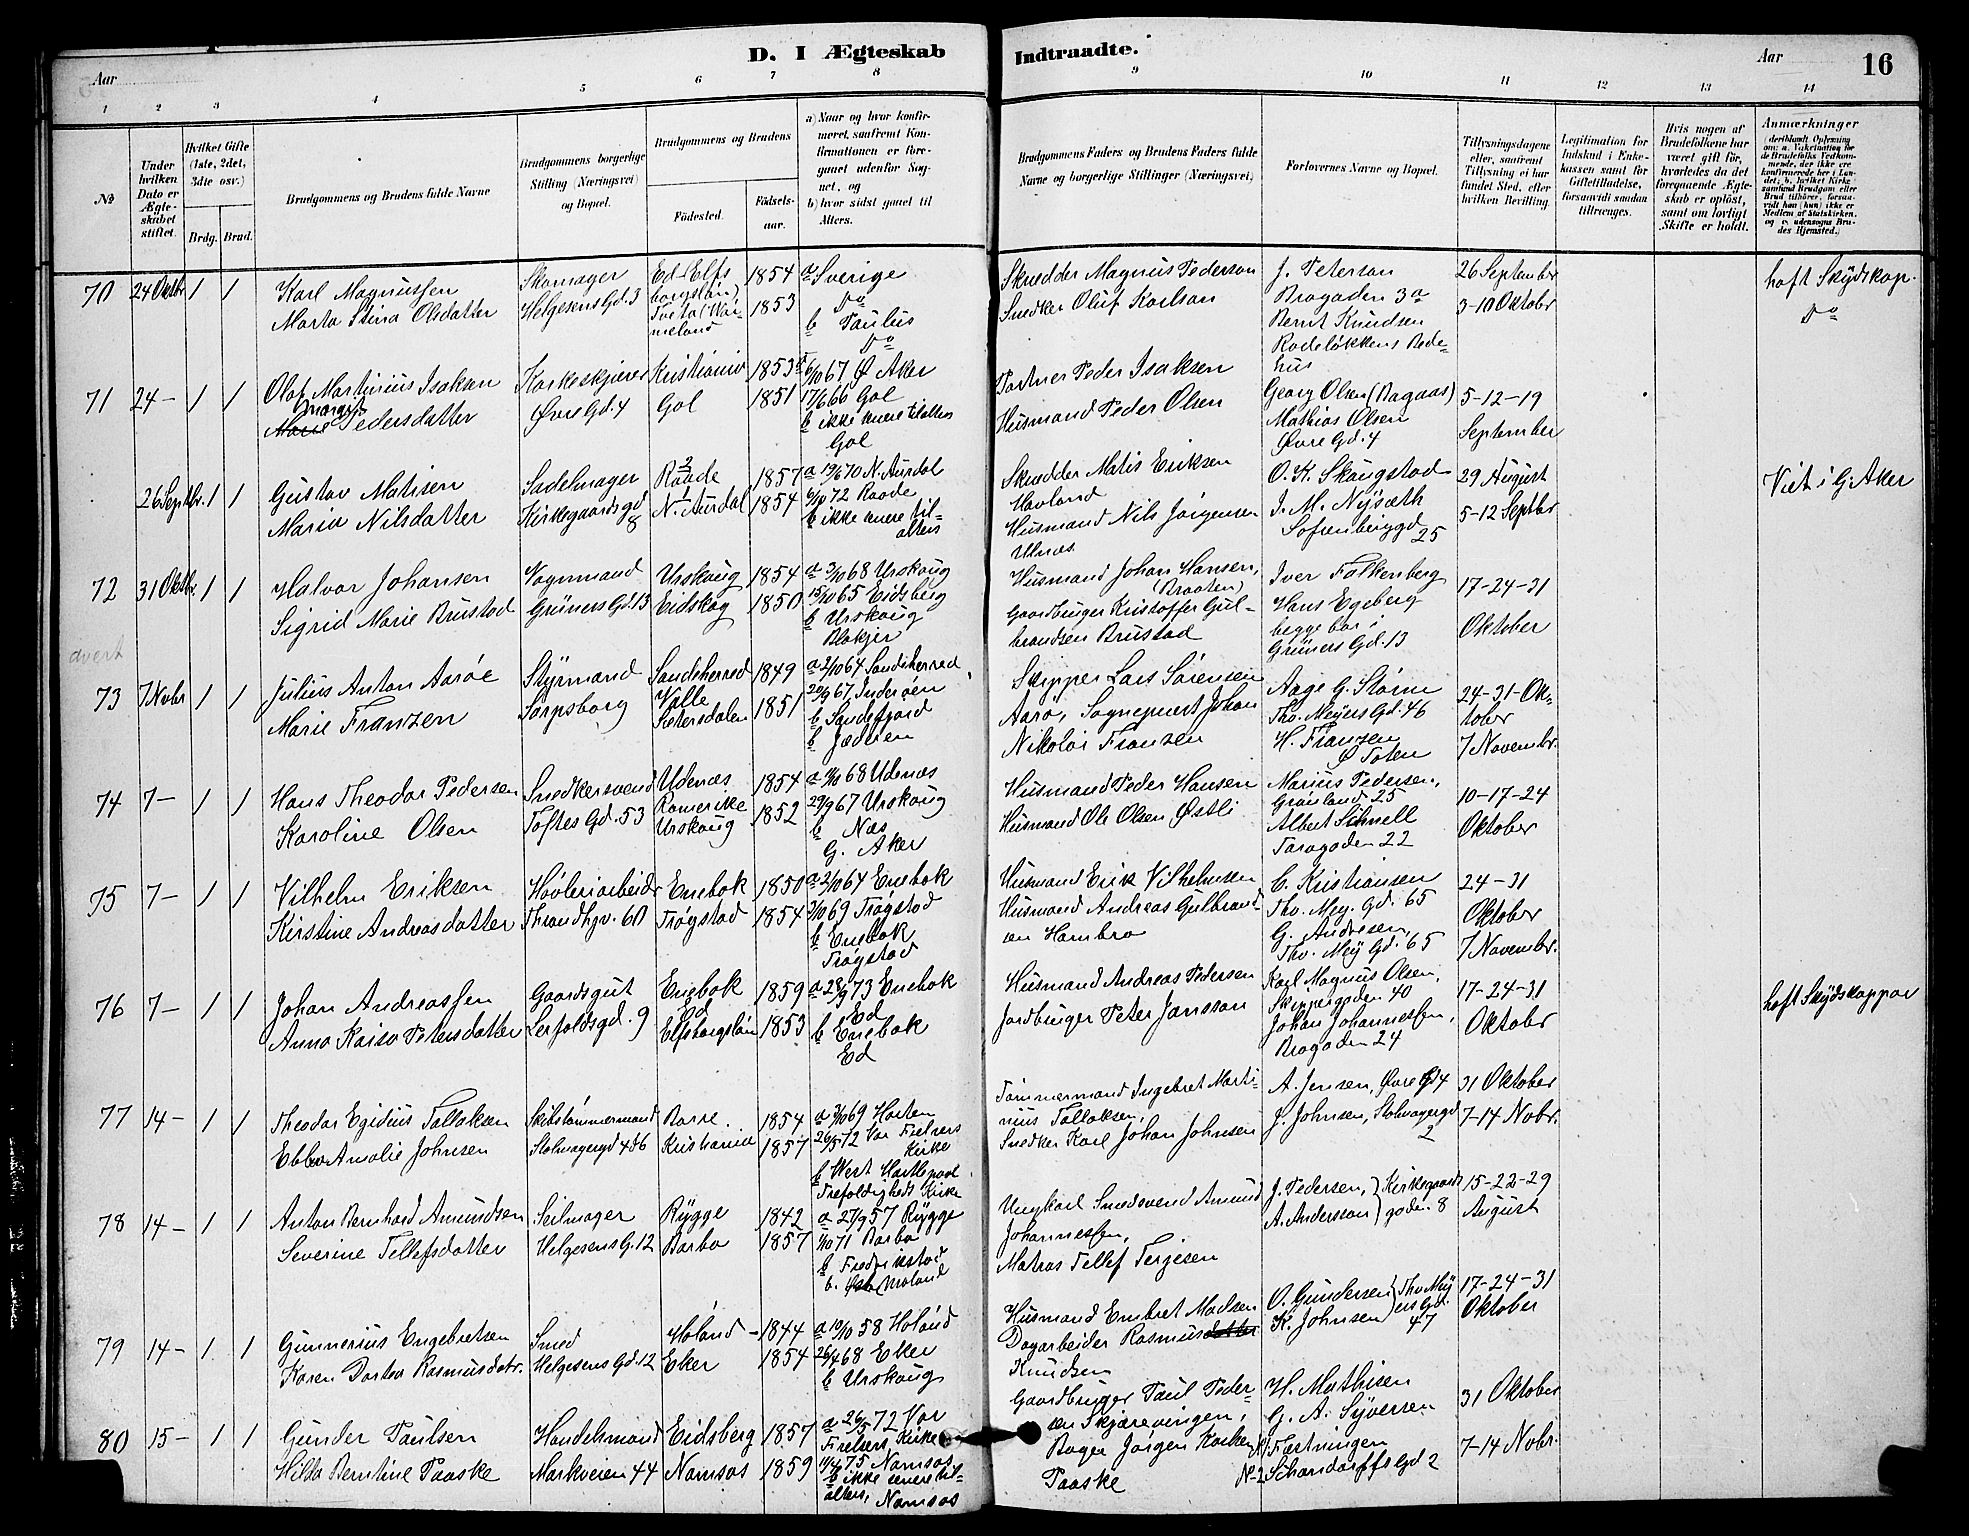 D. I Ægteskab Indtraadte.
Aar
Aar
16
1 2 3 4 5 6 7 8 9 10 11 12 13 14
№
Under hvilken Dato er Ægteskabet stiftet.
Hvilket Gifte (1ste, 2det, 3dte osv.)
Brdg. Brud.
Brudgommens og Brudens fulde Navne
Brudgommens borgerlige Stilling (Næringsvei) og Bopæl.
Brudgommens og Brudens
Fødested.
Fødsels-aar.
a) Naar og hvor konfirmeret, saafremt Konfirmationen er foregaaet udenfor Sognet, og
b) hvor sidst gaaet til Alters.
Brudgommens Faders og Brudens Faders fulde Navne og borgerlige Stillinger (Næringsvei)
Forlovernes Navne og Bopæl.
Tillysningsdagene eller, saafremt Tillysning ei har fundet Sted, efter hvilken Bevilling.
Legitimation for Indskud i Enkekassen samt for Giftetilladelse, forsaavidt saadan tiltrænges.
Hvis nogen af Brudefolkene har været gift før, hvorledes da det foregaaende Ægteskab er opløst, samt om lovligt Skifte er holdt.
Anmærkninger
70 24 Oktbr. 1 1 Karl Magnussen Skomager 1854 a Sverige Skrædder Magnus Pederson J. Peterson 26 September haft Skydskop.
Marta Stina Olsdatter Helgesens Gd. 3 1853 Do Snedker Oluf Karlson Brogaden 3a 3-10 Oktobr Do
b Paulus Bernt Knudsen
Do Rodeløkkens Bedehus
71 24 – 1 1 Olaf Martinius Isaksen Korkeskjærer Kristiania 1853 a 6/10 67 Ø Aker Peder Isaksen Georg Olsen (Bagaas) 5-12-19
Margit Pedersdatter Øvre Gd. 4 Gol 1851 17/6 66 Gol Husmand Peder Olsen Mathias Olsen September
b ikke senere til alters Øvre Gd. 4
Gol
26 Septbr. 1 1 Gustav Matisen Sadelmager Raade 1857 a N. Aurdal Skrædder Matis Eriksen O. K. Skaugstad 29 August Viet i G. Aker
Maria Nilsdatter Kirkegaardsgd 8 N. Aurdal 1854 6/10 72 Raade Havland J. M. Nysæth 5-12 Septbr
b ikke senere til alters Husmand Nils Jørgensen Ulnæs Sofienberggd 25
72 31 Oktbr. 1 1 Halvor Johansen Vognmand Urskoug 1854 a 3/10 68 Urskoug Husmand Johan Hansen, (Braaten) Iver Falkenberg 17-24-31
Sigrid Marie Brustad Grüners Gd. 13 Eidskog 1850 15/10 65 Eidsberg Gaardbruger Kristoffer Gul- Hans Egeberg Oktober
b Urskoug brandsen Brustad begge bor i
Blakjer Grüners Gd. 13
73 7 Nobr 1 1 Julius Anton Aarøe Styrmand Sandeherred 1849 a 2/10 64 Sandeherred Skipper Lars Sørensen Aage G. Størm 24-31-Ok-
Marie Franzen Sarpsborg Valle Sætersdalen 1851 29/9 67 Inderøen Aarø, Sogneprest Johan Thv. Meyers Gd. 46 tober
b Sandefjord Nikolai Franzen H. Franzen 7 Novembr.
b Ø Toten
74 7 – 1 1 Hans Theodor Pedersen Snedkersvend Udenæs 1854 a 68 Udenæs Husmand Peder Hansen Marius Pedersen, 10-17-24
Karoline Olsen Toftes Gd. 53 Romerike Urskoug 1852 29/9 67 Urskoug Husmand Ole Olsen Østli Grønland 25 Oktober
b Næs Albert Schnell
G. Aker Torvgaden 22
75 7 – 1 1 Vilhelm Eriksen Høvleriarbeider Enebak 1850 a 2/10 64 Enebak Husmand Erik Vilhelmsen C. Kristiansen 24-31
Kirstine Andreasdatter Throndhjv. 60 Trøgstad 1854 3/10 69 Trøgstad Husmand Andreas Gulbrand- Thv. Mey. Gd. 65 Oktober
b Enebak sen Hambro G. Andresen, 7 Novembr.
Trøgstad Thv. Mey Gd. 65
76 7 – 1 1 Johan Andreassen Gaardsgut Enebak 1859 a 28/9 73 Enebak Husmand Andreas Pedersen Karl Magnus Olsen, 17-24-31 haft Skydskoppor
Anna Kaisa Petersdatter Leifoldsgd. 9 Ed Elfsborgslän 1853 Ed Jordbruger Peter Jansson Skippergaden 40 Oktobr
b Enebak Johan Johannessen,
Ed Brogaden 24
77 14 – 1 1 Theodor Egidius Tallaksen Skibstømmermand Borre 1854 a 3/10 69 Horten Tømmermand Ingebret Marti- A. Jensen, Øvre Gd 4 31 Oktober
Ebba Amalie Johnsen Stolmagergd 4 Kristiania 1857 26/5 72 Vor Frelsers Kirke nius Tallaksen, J. Johnsen, Stolmagergd 2 7-14 Nobr.
b West Hartlepool Snedker Karl Johan Johnsen
Trefoldigheds Kirke
78 14 – 1 1 Anton Bernhard Amundsen Seilmager Rygge 1842 a 27/9 57 Rygge Ungkarl Smedsvend Amund J. Pedersen, } Kirkegaards 15-22-29
Severine Tellefsdatter Helgesens G. 12 Barbo 1857 1/10 71 Barbo Johannessen, A. Anderssen } gaden 8 August
b Fredrikstad Matros Tellef Terjesen
b. Moland
79 14 – 1 1 Gunnerius Engebretsen Smed Høland 1844 a 10/10 58 Høland Husmand Embret Madsen O. Gundersen } Thv Mey- 17-24-31
Karen Dortea Rasmusdatr. Helgesens Gd. 12 Eker 1854 26/4 68 Eker Dagarbeider Rasmus K. Johnsen } ers Gd. 47 Oktober
b Urskoug Knudsen
80 15 – 1 1 Gunder Paulsen Handelsmand Eidsberg 1857 a 26/5 72 Vor Gaardbruger Paul Peder- H. Mathisen 31 Oktober
Hilda Berntine Paaske Markveien 44 Namsos 1859 Frelsers Kirke sen Skjærevingen, G. A. Syversen 7-14 Nobr.
75 Namsos Bager Jørgen Paaske № 1 Fæstningen
b ikke senere til alters, Namsos № 2 Schandorffs Gd 2